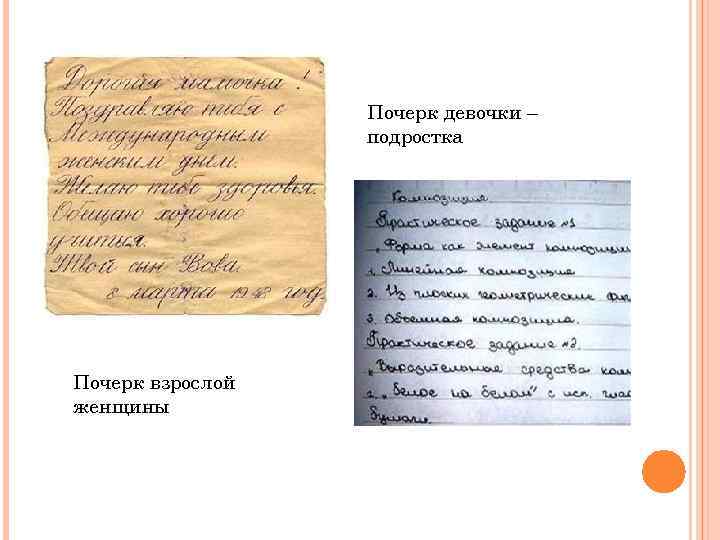 Дорогая мамочка!
Поздравляю тебя с
Международным
женским днём.
Желаю тебе здоровья.
Обещаю хорошо
учиться.
Твой сын Вова.
8 марта 1948 год.
Почерк взрослой
женщины
Почерк девочки –
подростка
Композиция.
Практическое задание №1
"Форма как элемент композиции
1. Линейная композиция
2. Из плоских геометрических фиг
3. Объемная композиция.
Практическое задание №2.
"Выразительные средства ком
2. "белое на белом" с исп.
бумаги.